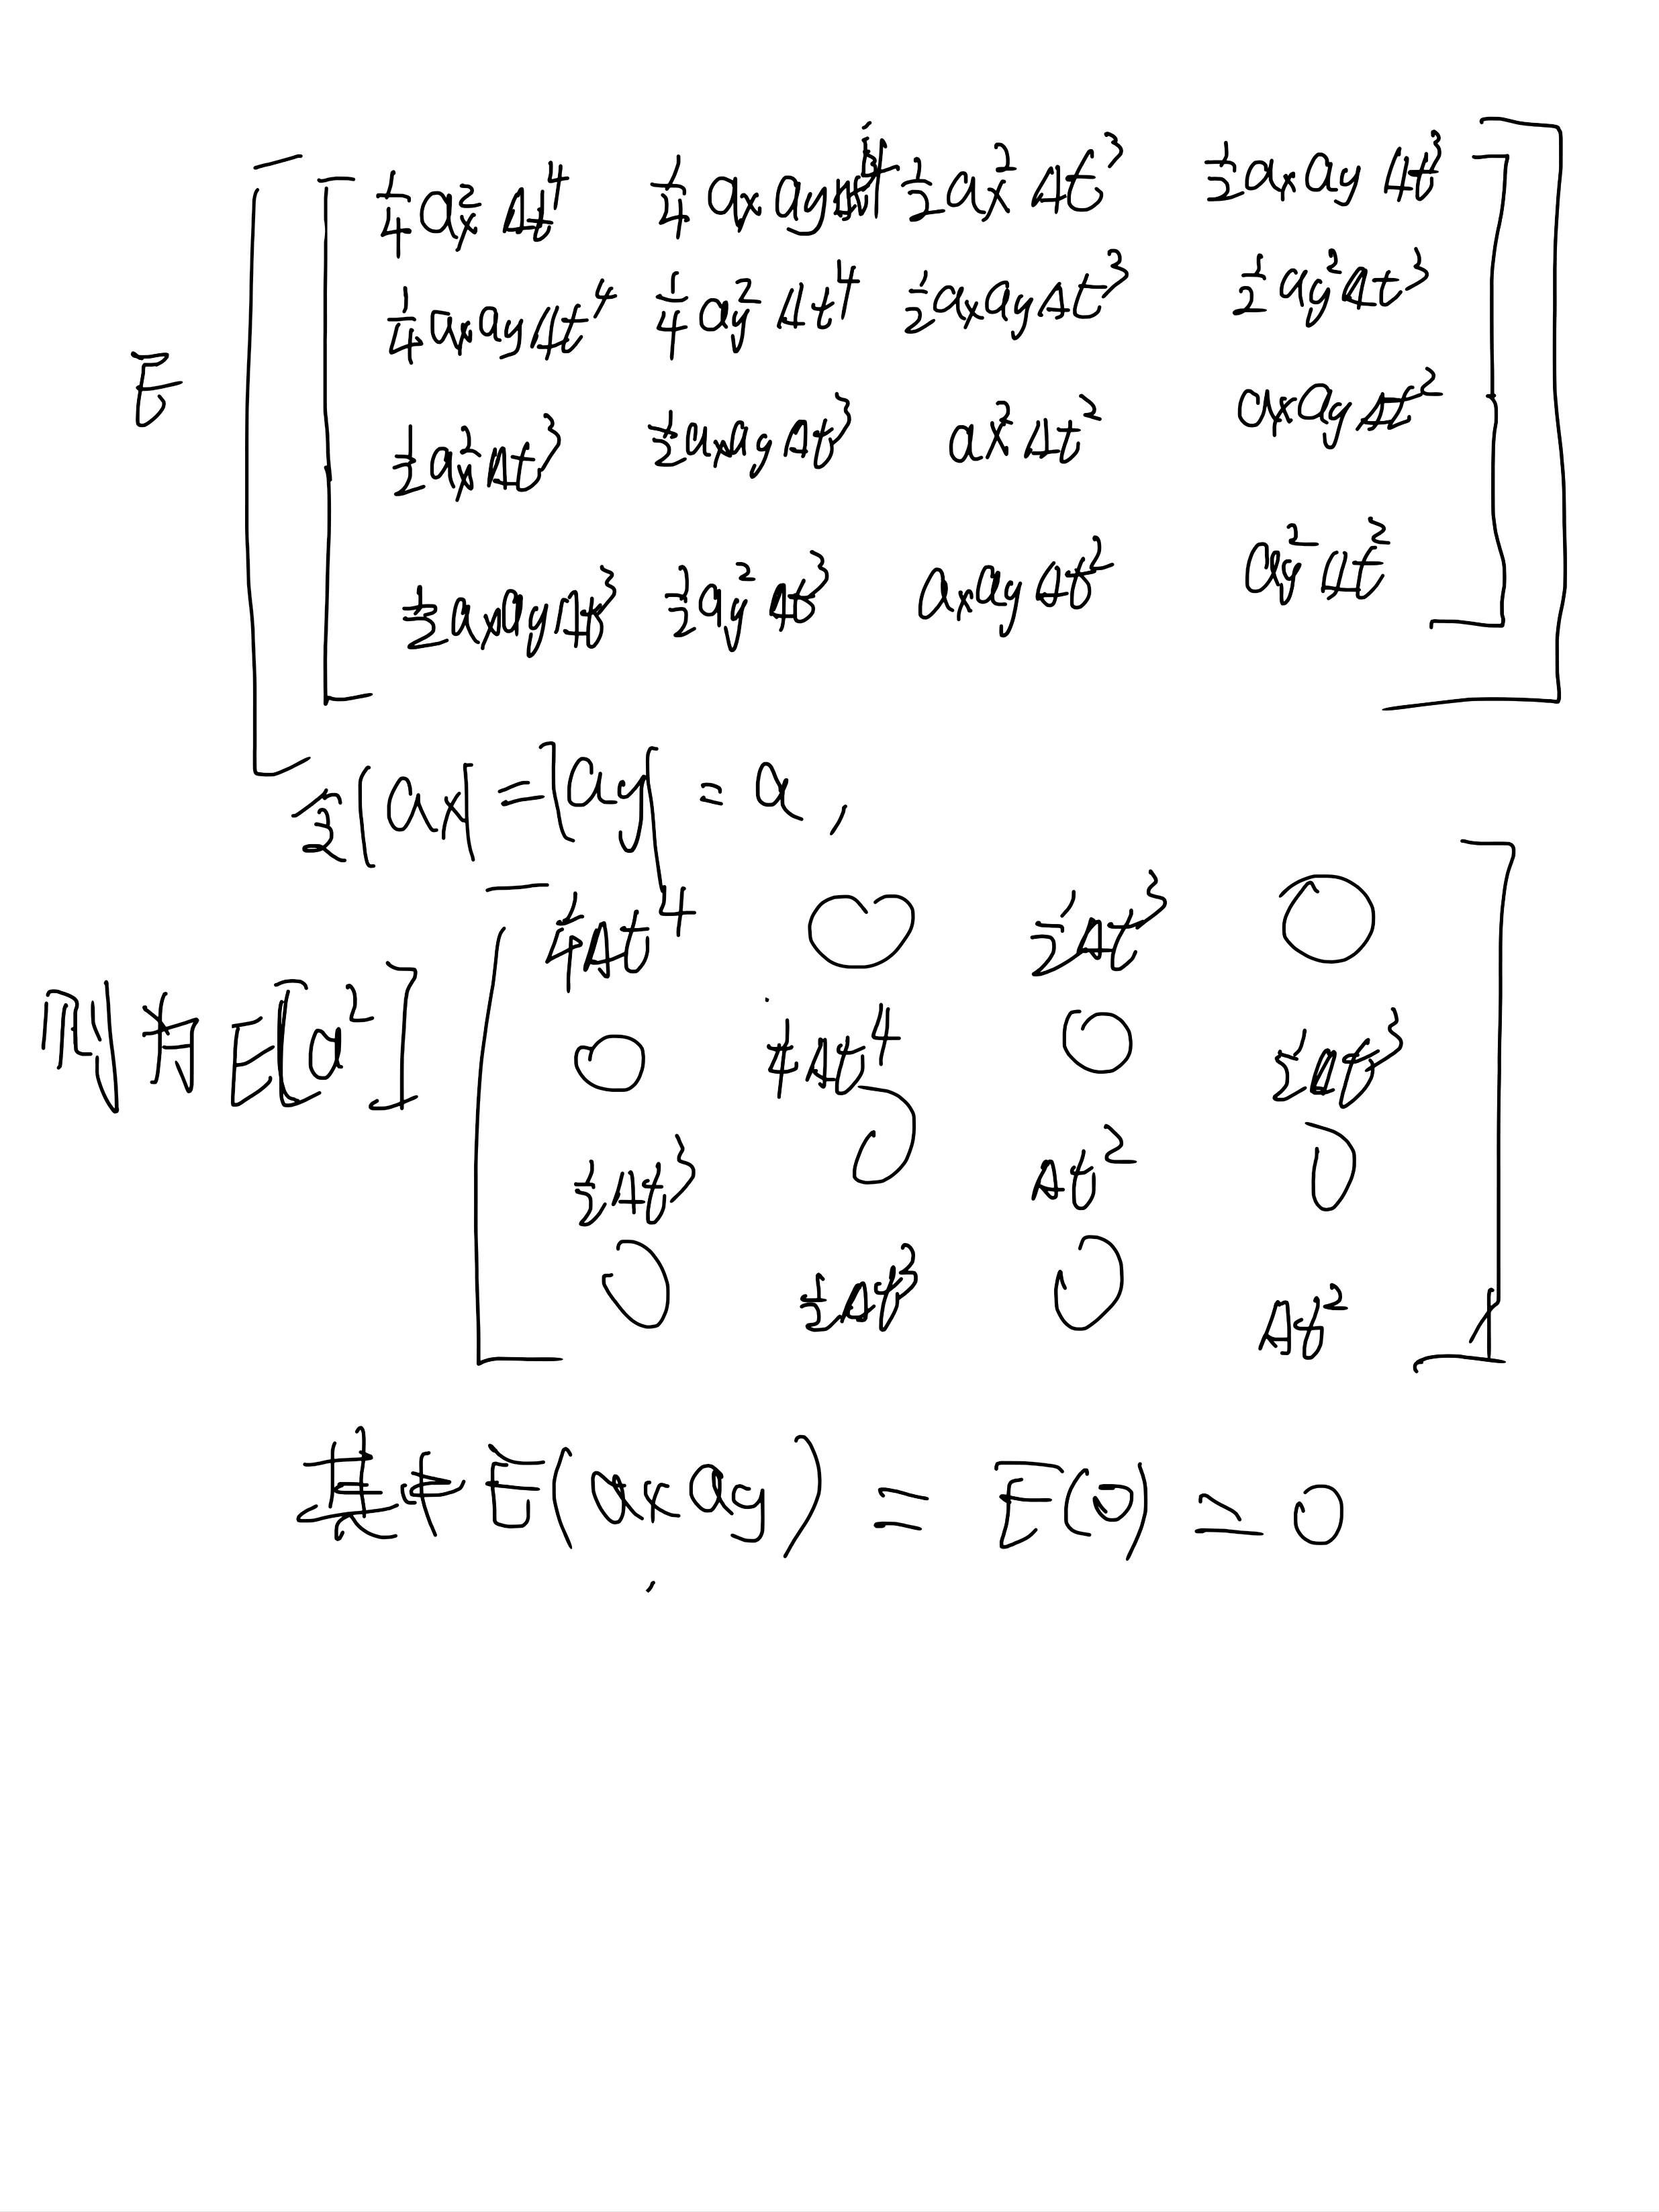 E
1/4 ax² Δt⁴ 1/4 ax ay Δt⁴ 1/2 ax² Δt³ 1/2 ax ay Δt³
1/4 ax ay Δt⁴ 1/4 ay² Δt⁴ 1/2 ax ay Δt³ 1/2 ay² Δt³
1/2 ax² Δt³ 1/2 ax ay Δt³ ax² Δt² ax ay Δt²
1/2 ax ay Δt³ 1/2 ay² Δt³ ax ay Δt² ay² Δt²
令|ax| = |ay| = a,
则为E[a²]
1/4 Δt⁴ 0 1/2 Δt³ 0
0 1/4 Δt⁴ 0 1/2 Δt³
1/2 Δt³ 0 Δt² 0
0 1/2 Δt³ 0 Δt²
其中E(ax ay) = E(0) = 0